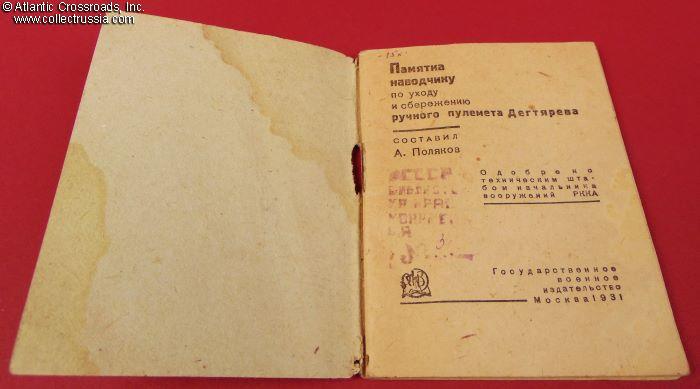 © Atlantic Crossroads, Inc.
www.collectrussia.com
Памятка
наводчику
по уходу
и сбережению
ручного пулемета Дегтярева
СОСТАВИЛ
А. Поляков
Одобрено
техническим шта-
бом начальника
вооружений РККА
СССР
Государственное
военное
издательство
Москва 1931